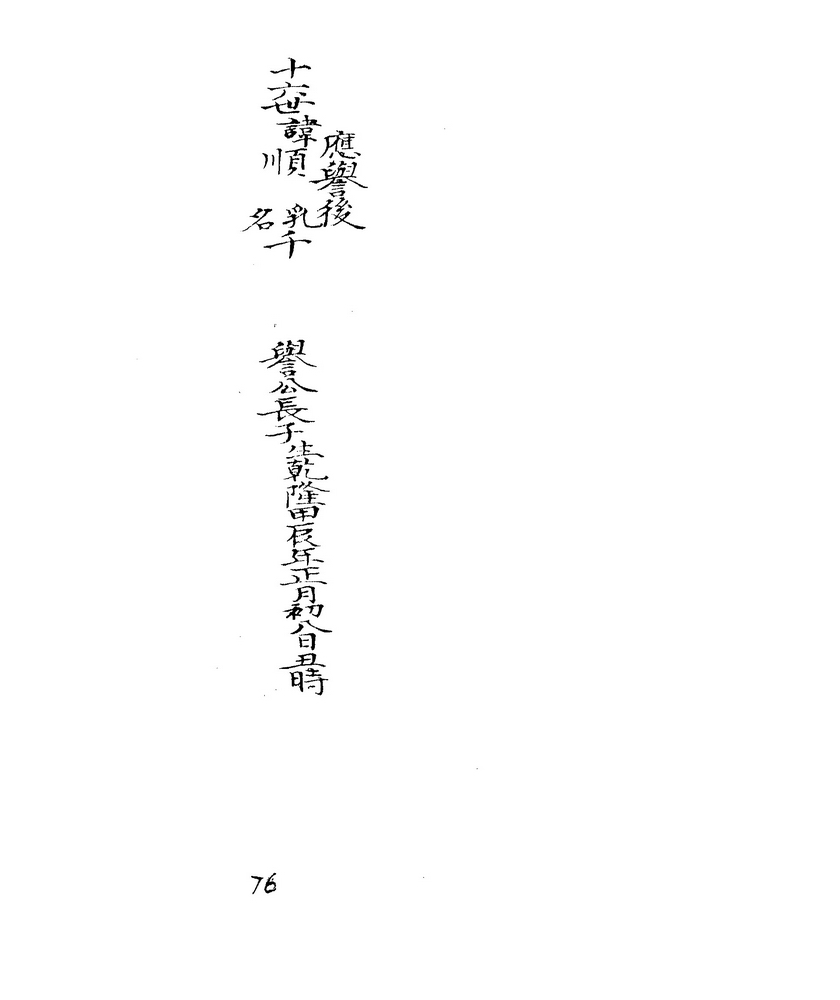 應譽後
十六世諱順 乳名千
譽公長子生乾隆甲辰年正月初八日丑時
76